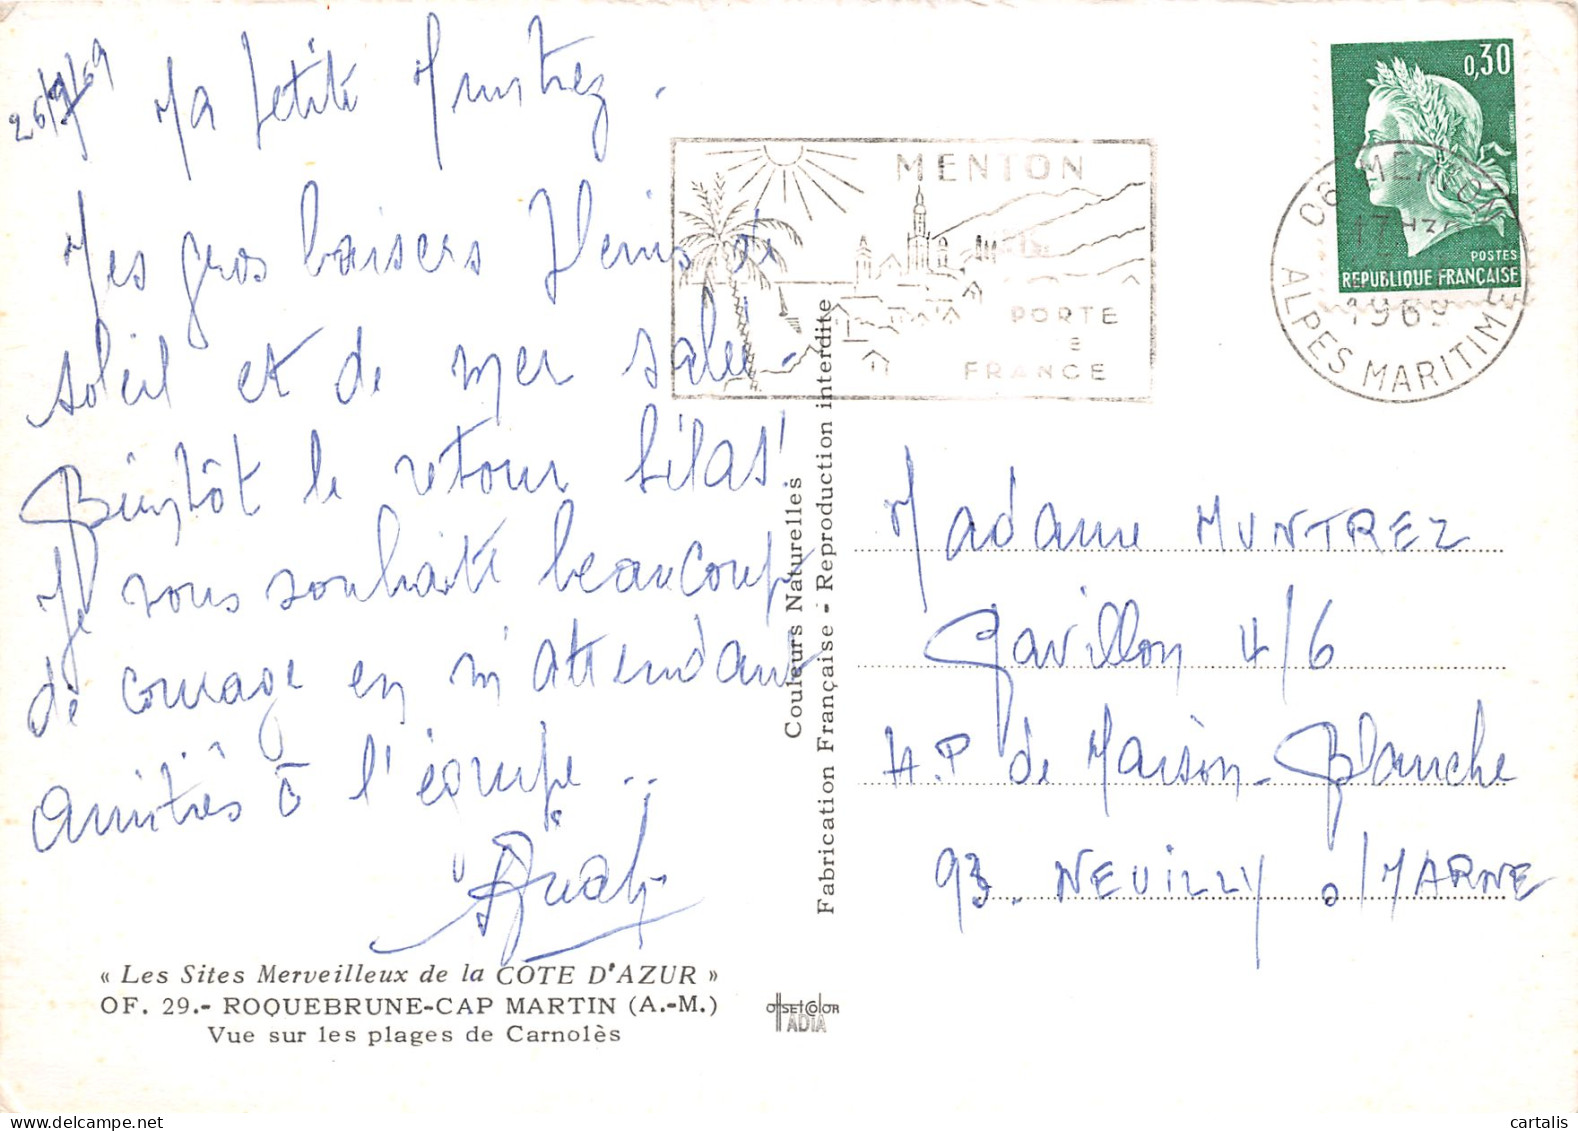 26/9/69
Ma petite Muntrez.
Mes gros baisers de
soleil et de mer salée.
Bientôt le retour hélas!
Je vous souhaite beaucoup
de courage en m'attendant
Amitiés à l'équipe..
« Les Sites Merveilleux de la COTE D'AZUR »
OF. 29.- ROQUEBRUNE-CAP MARTIN (A.-M.)
Vue sur les plages de Carnolès
OFFSET COLOR
ADIA
Couleurs Naturelles
Fabrication Française - Reproduction interdite
MENTON
PORTE
FRANCE
0,30
POSTES
REPUBLIQUE FRANÇAISE
06 MENTON
1969
ALPES MARITIMES
Madame MUNTREZ
Pavillon 4/6
H.P de Maison-Blanche
93. NEUILLY s/MARNE
cartalis